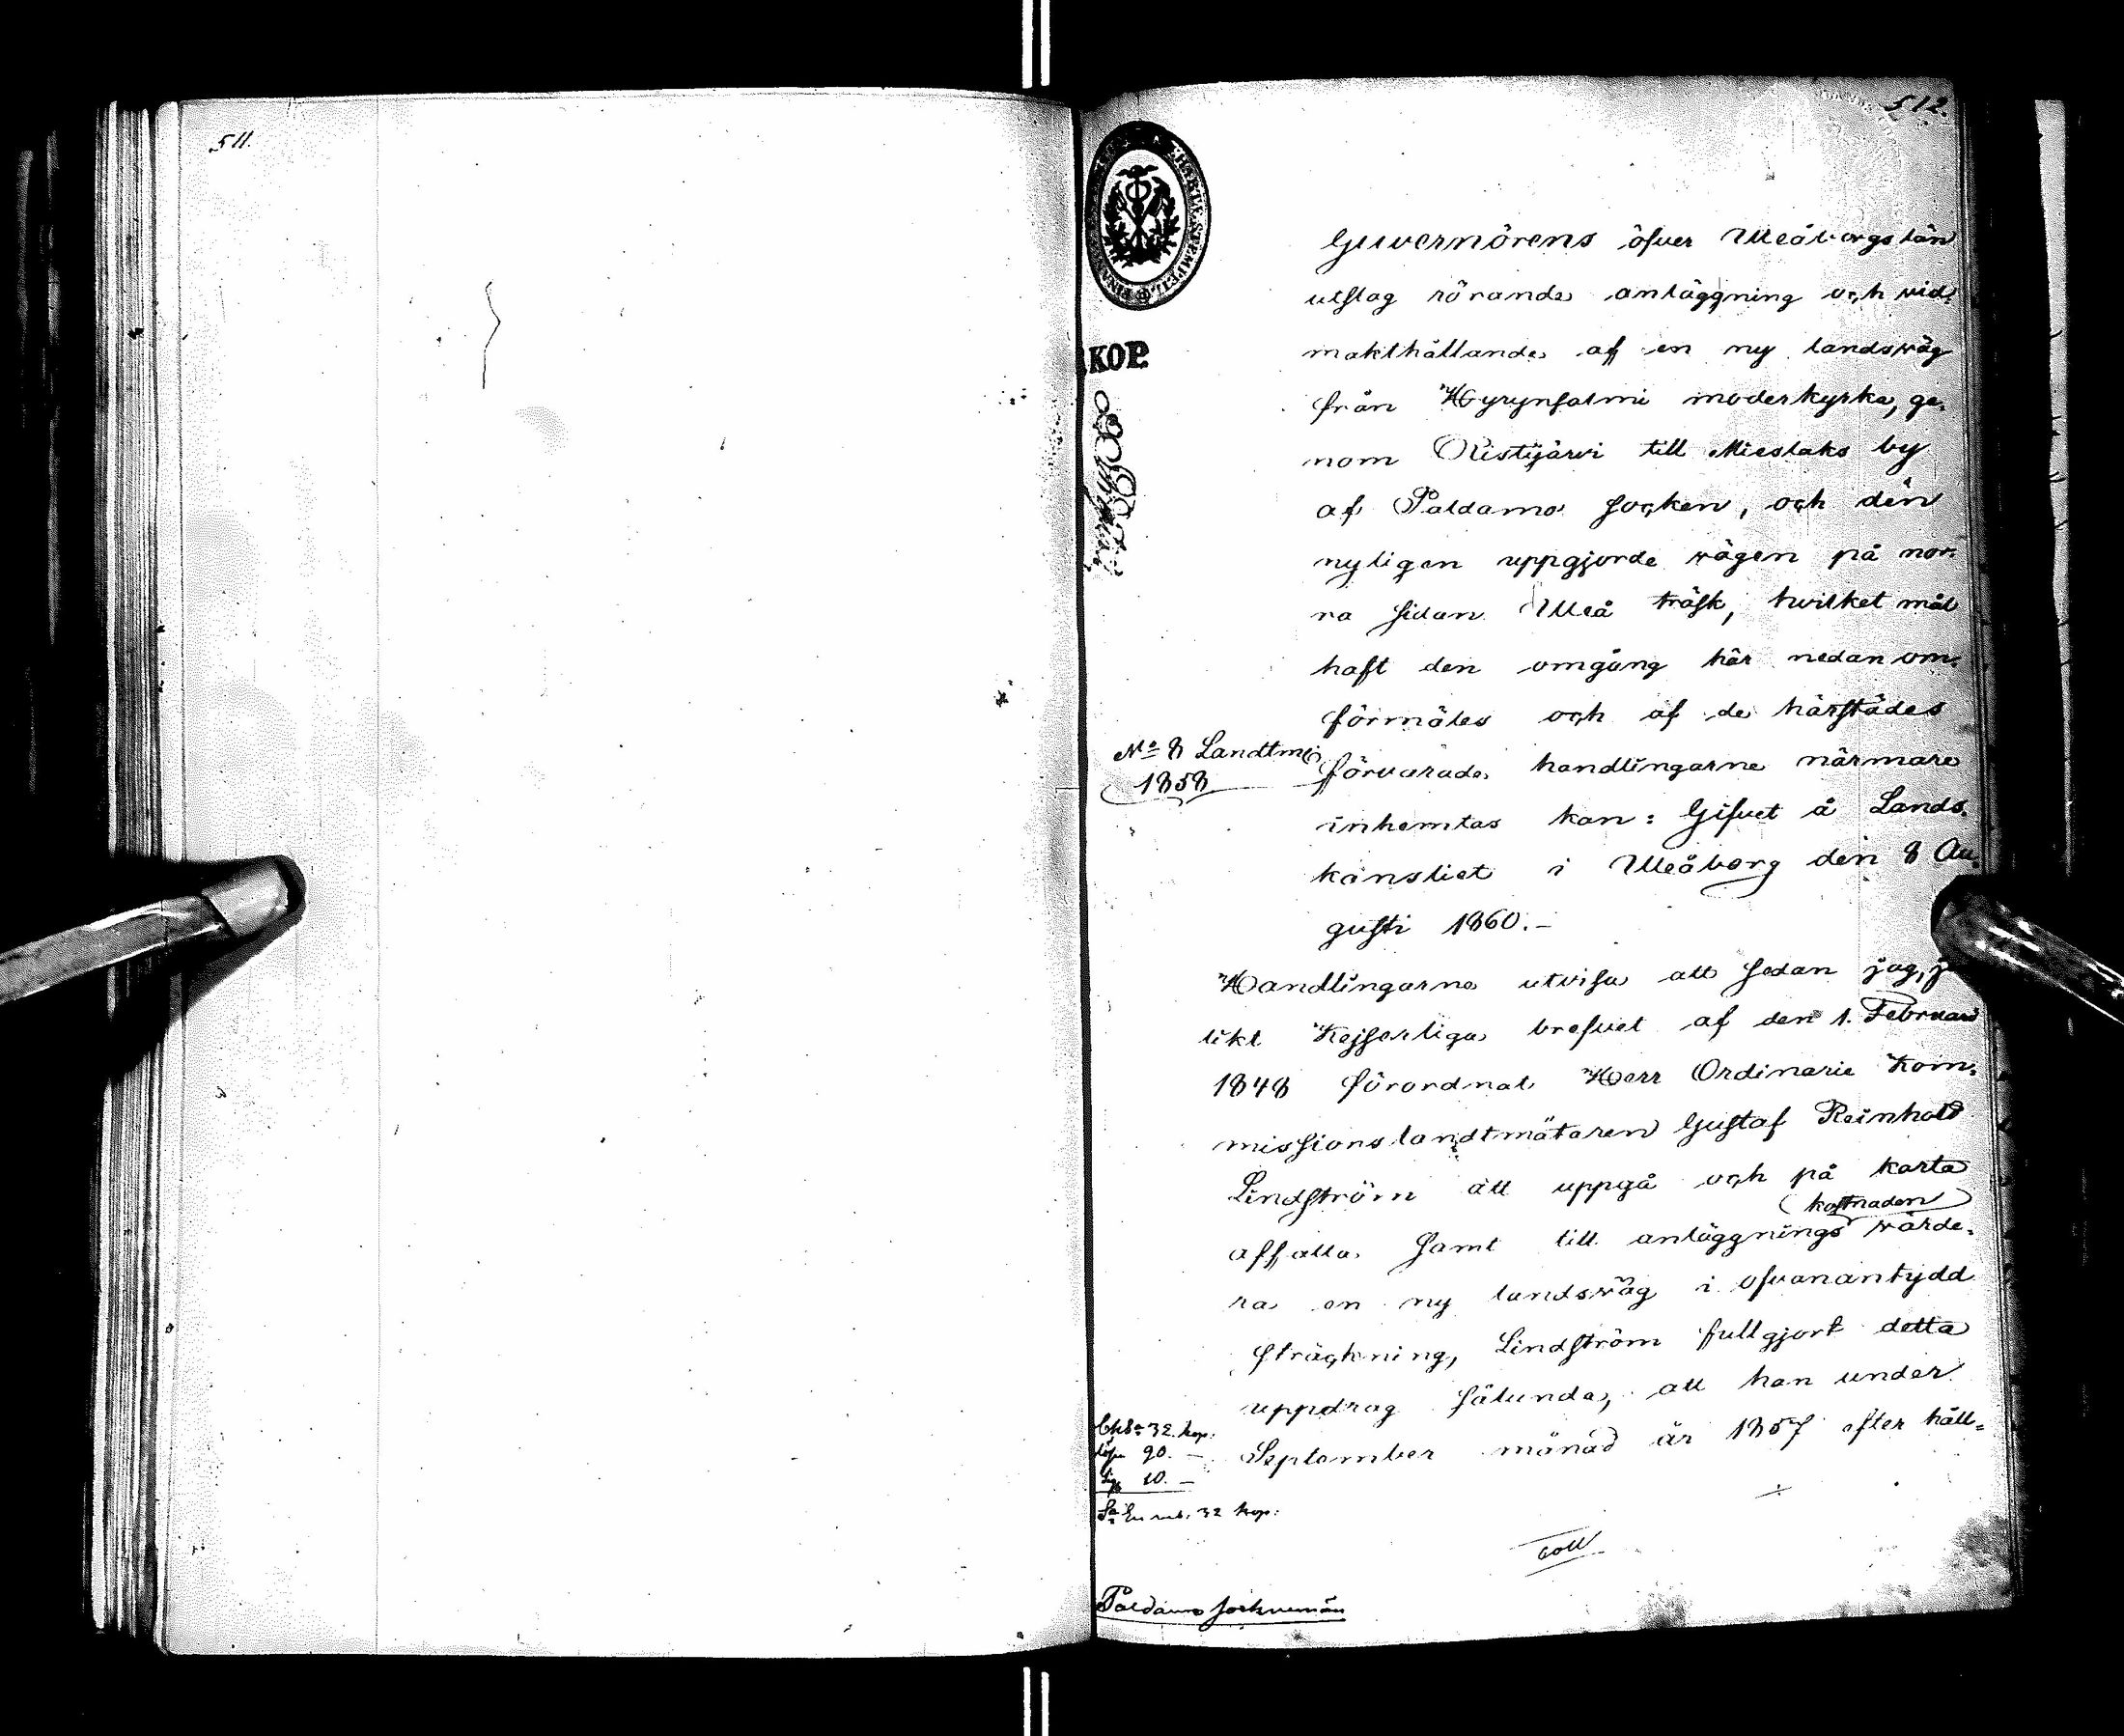 511.
512.
KOP.
Guvernörens öfver Uleåborgs län
utslag rörande anläggning och vid=
makthållande af en ny landswäg
från Hyrynsalmi moderkyrka, ge=
nom Ristijärvi till Mieslaks by
af Paldamo socken, och den
nyligen uppgjorde wägen på nor=
ra sidan Uleå träsk, hwilket mål
haft den omgång här nedan om=
förmäles och af de härstädes
No 8 Landtm:
1858
förvarade handlingarne närmare
inhemtas kan: Gifvet å Lands=
kansliet i Uleåborg den 8 Au=
gusti 1860.-
Handlingarne utvisa att sedan jag,
likt Kejserliga brefvet af den 1. Februari
1848 förordnat Herr Ordinarie Kom=
missionslandtmätaren Gustaf Reinhold
Lindström att uppgå och på karta
kostnaden
affatta samt till anläggnings wärde=
ra en ny landswäg i ofvanantydd
sträckning, Lindström fullgjort detta
uppdrag sålunda, att han under
September månad år 1857 efter håll=
32 kop:
Lösn 90. —
10. —
Sa En rub. 32 kop:
Paldamo sockenmän